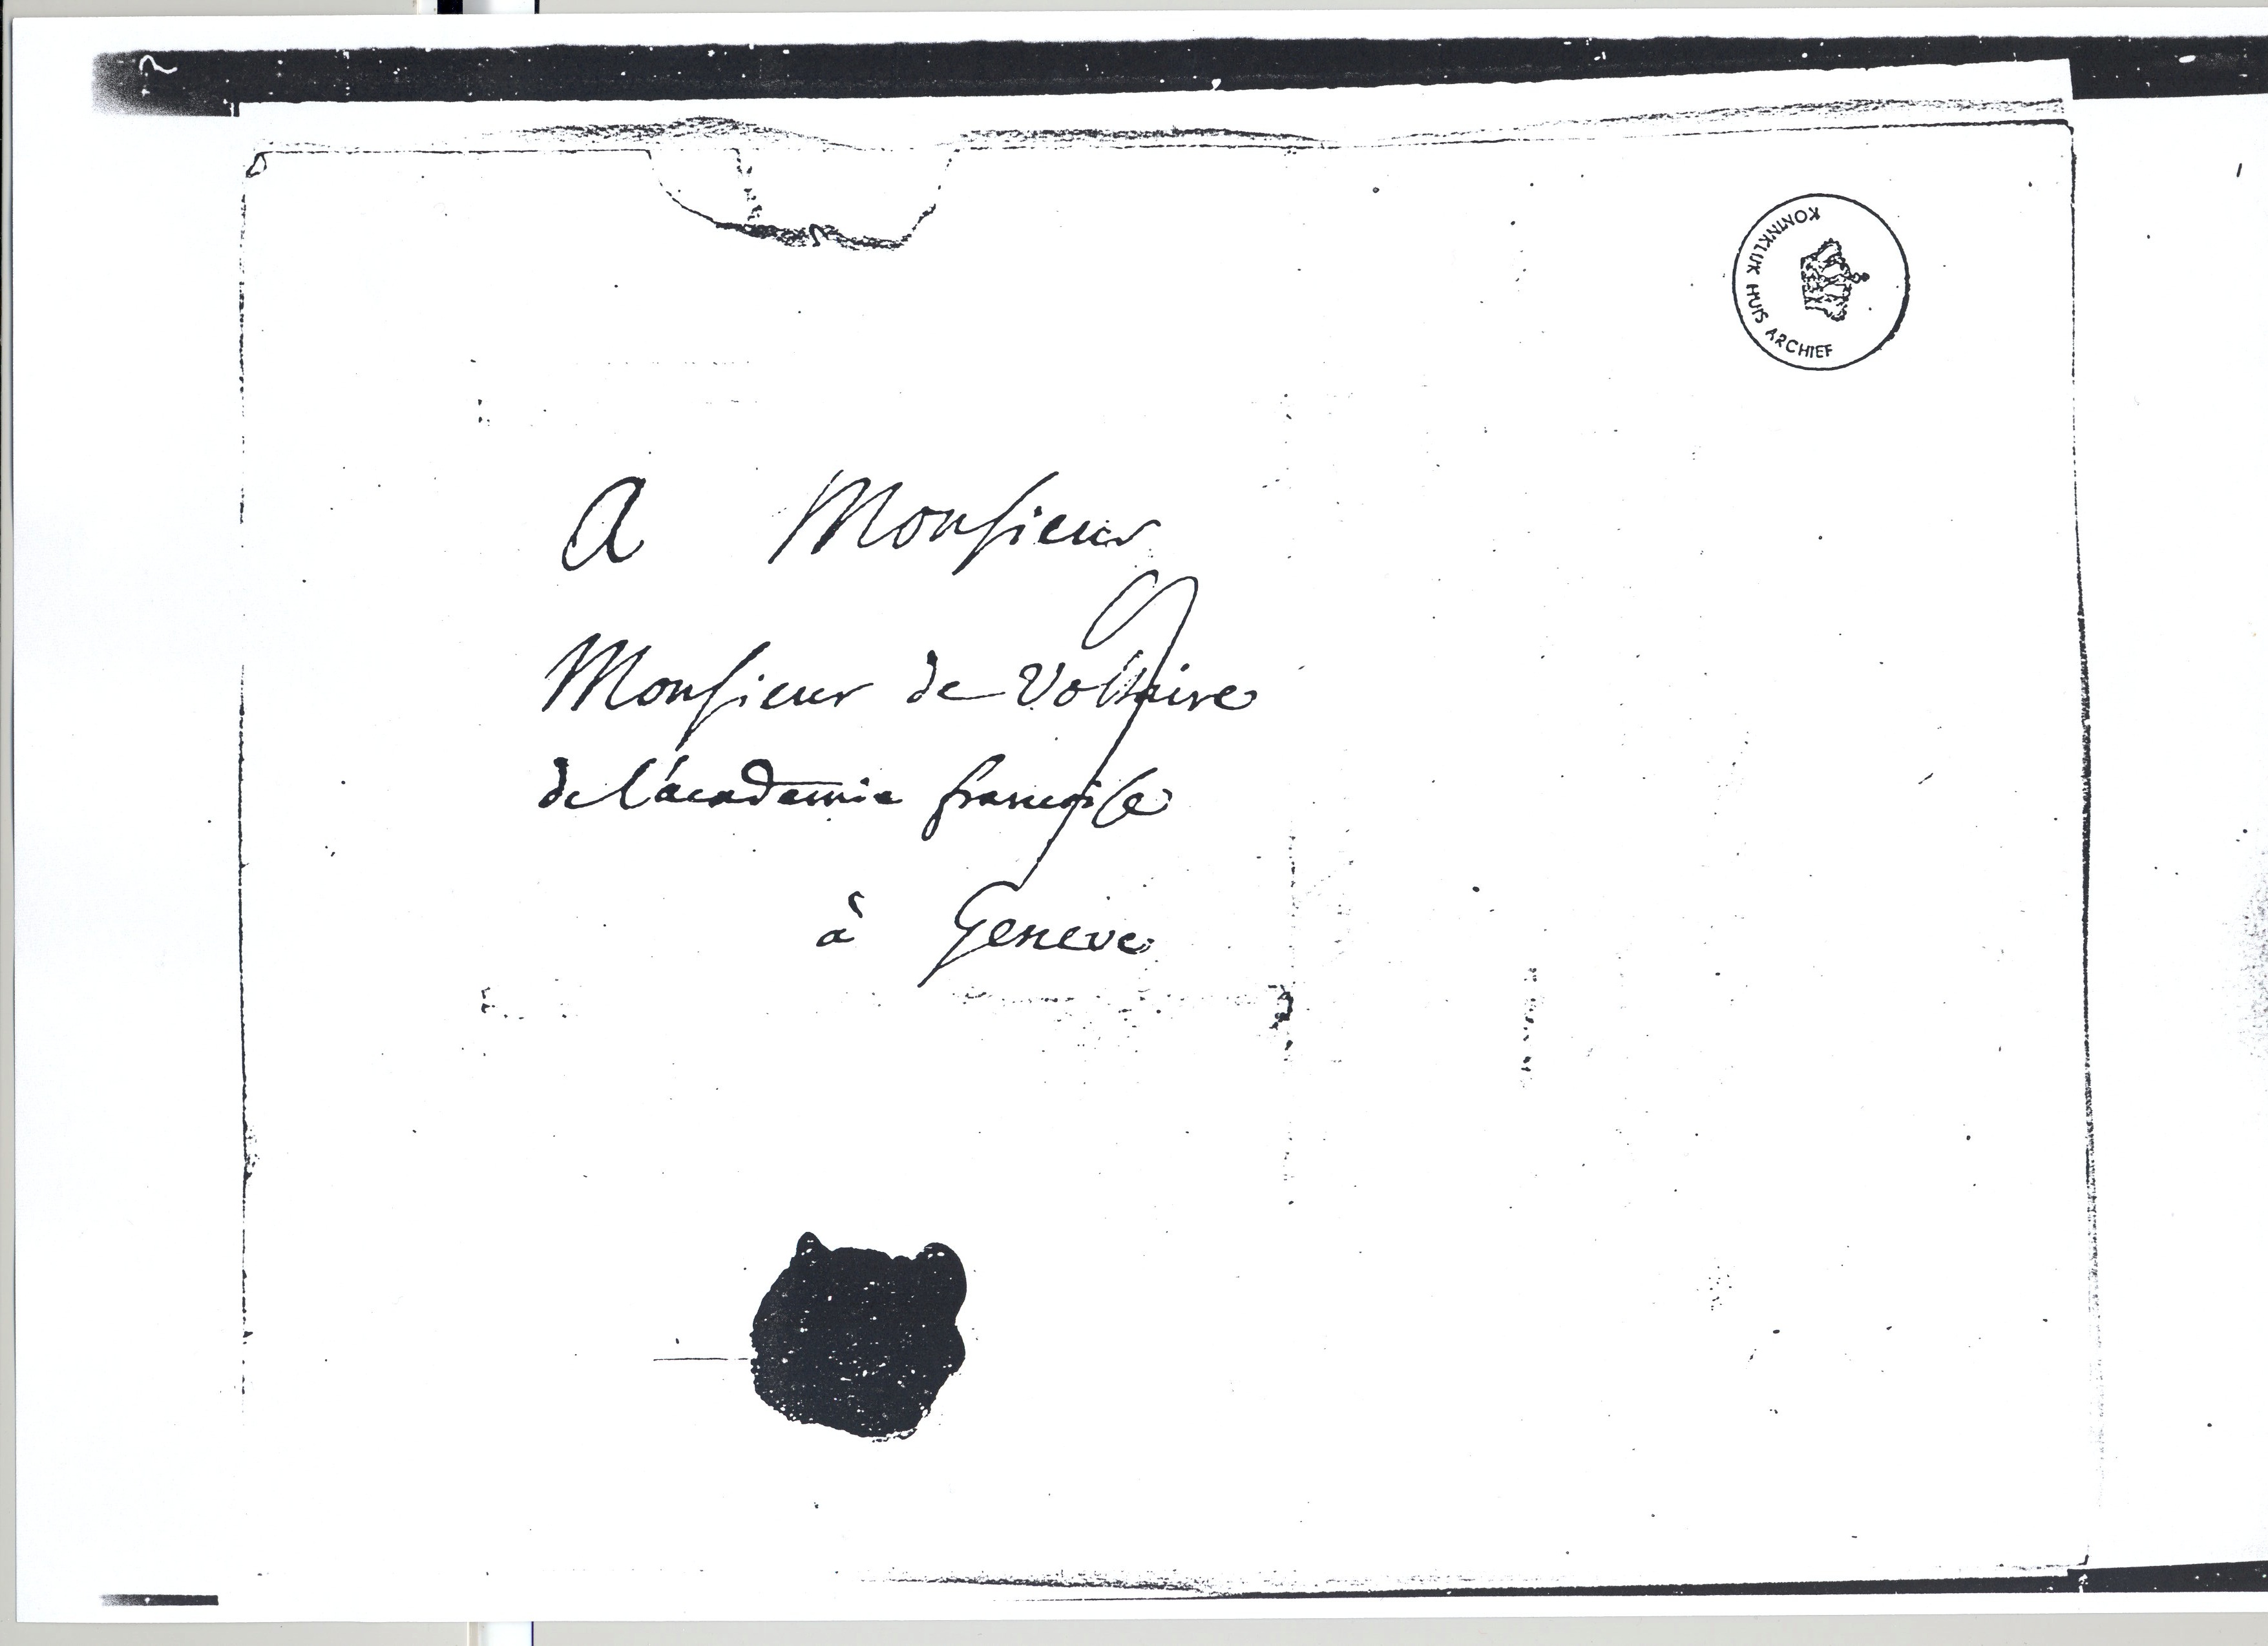 KONINKLIJK HUIS ARCHIEF
A Monsieur
Monsieur de Voltaire
de l'académie françoise
à Geneve